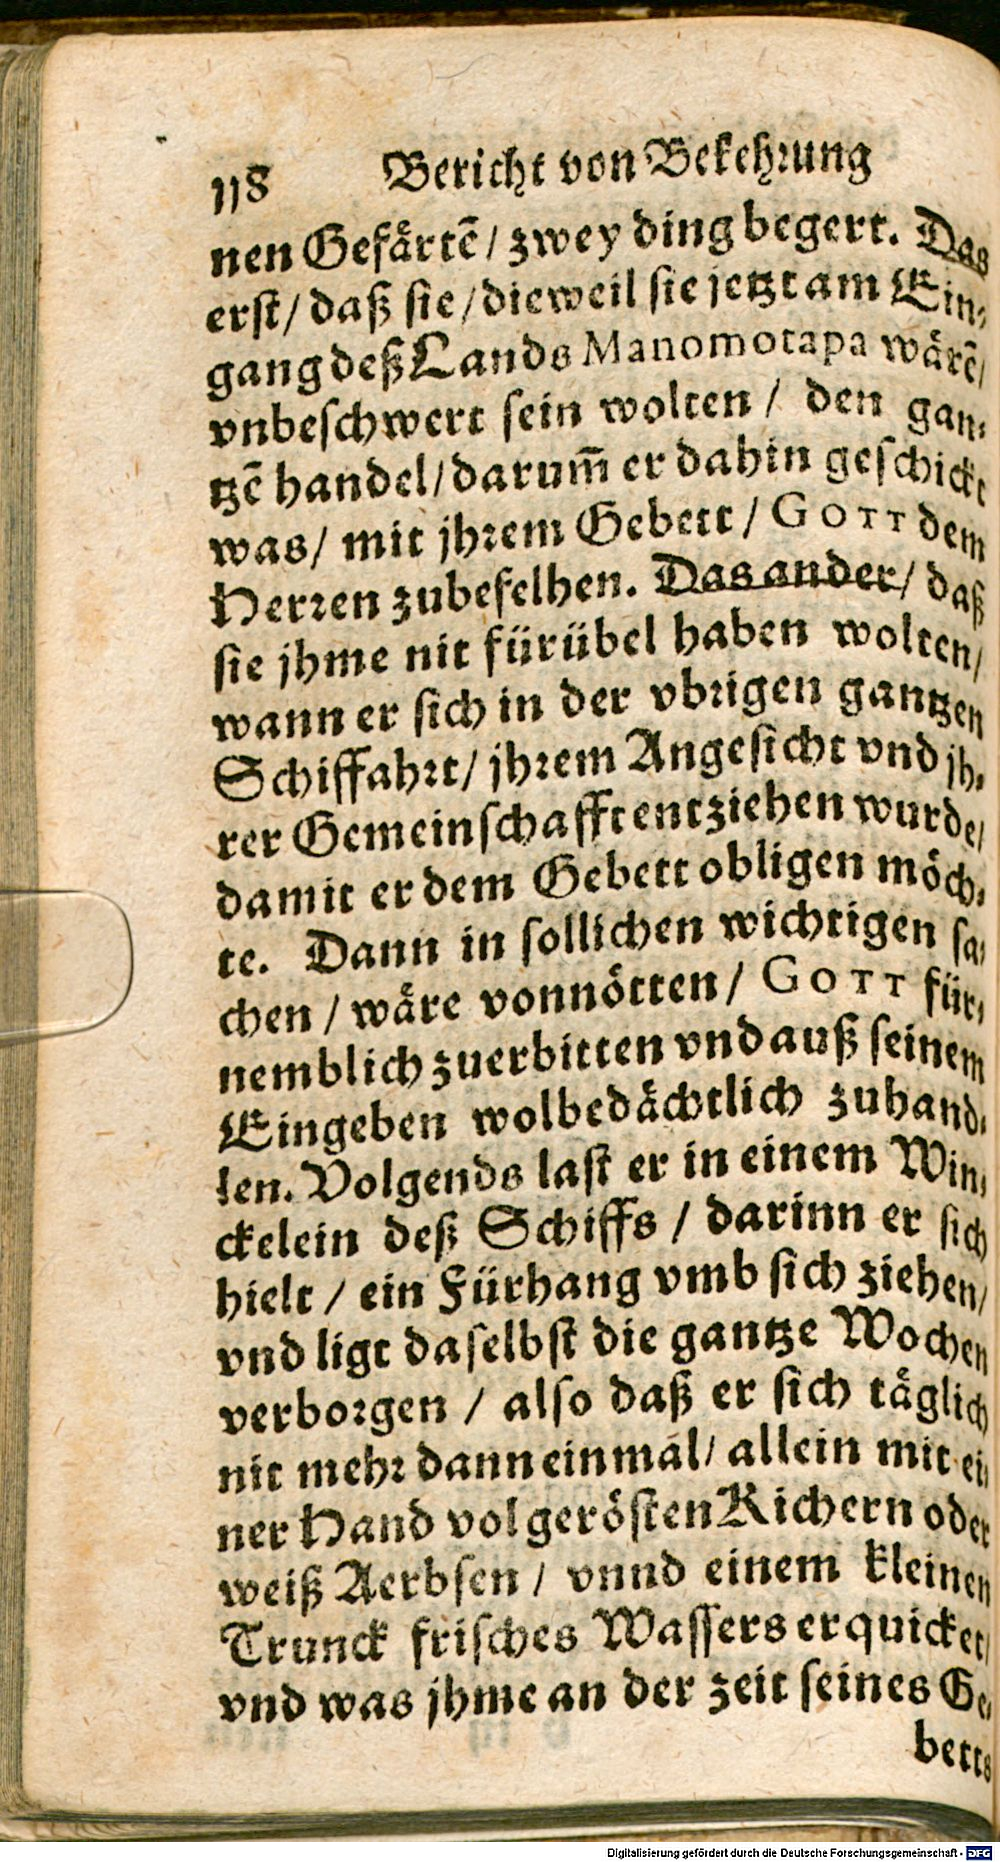 118 Bericht von Bekehrung
nen Gefärtē / zwey ding begert. Das
erst / daß sie / dieweil sie jetzt am Ein-
gang deß Lands Manomotapa wärē /
vnbeschwert sein wolten / den gan-
tzē handel / darum̄ er dahin geschickt
was / mit jhrem Gebett / GOTT dem
Herren zubefelhen. Das ander / daß
sie jhme nit fürübel haben wolten /
wann er sich in der vbrigen gantzen
Schiffahrt / jhrem Angesicht vnd jh-
rer Gemeinschafft entziehen wurde /
damit er dem Gebett obligen möch-
te. Dann in sollichen wichtigen sa-
chen / wäre vonnötten / GOTT für-
nemblich zuerbitten vnd auß seinem
Eingeben wolbedächtlich zuhand-
len. Volgends last er in einem Win-
ckelein deß Schiffs / darinn er sich
hielt / ein Fürhang vmb sich ziehen /
vnd ligt daselbst die gantze Wochen
verborgen / also daß er sich täglich
nit mehr dann einmal / allein mit ei-
ner Hand vol gerösten Kichern oder
weiß Aerbsen / vnnd einem kleinen
Trunck frisches Wassers erquicket /
vnd was jhme an der zeit seines Ge-
betts
Digitalisierung gefördert durch die Deutsche Forschungsgemeinschaft - DFG